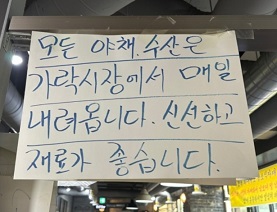 모든 야채.수산은
가락시장에서 매일
내려옵니다. 신선하고
재료가 좋습니다.